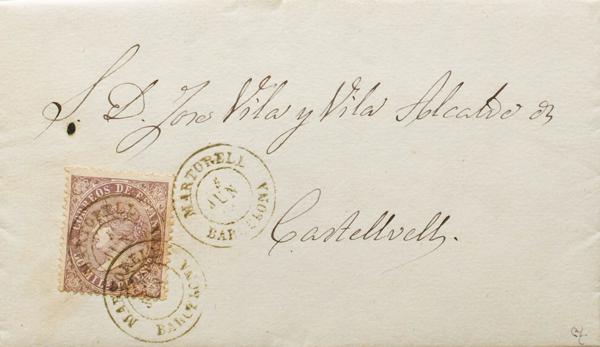 S. D. Jose Vila y Vila Alcalde de
Castellvell.
MARTORELL
5
JUN
BARCELONA
CORREOS DE ESPAÑA
MARTORELL
BARCELONA